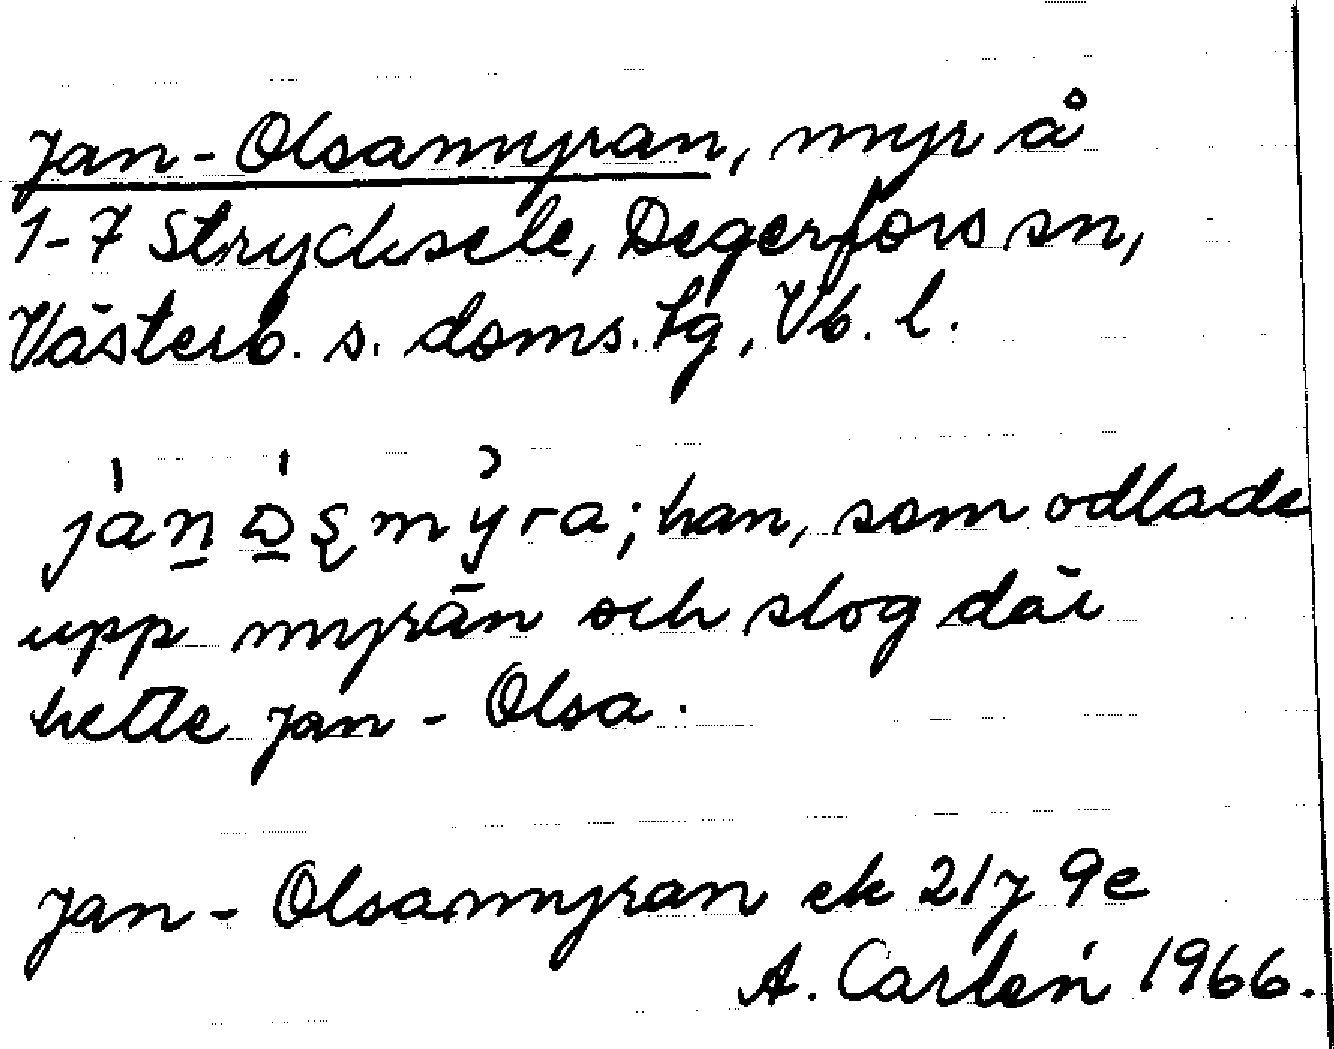 Jan-Olsamyran, myr å
1-7 Strycksele, Degerfors sn,
Västerb. s. doms. lg, Vb. l.
han, som odlade
upp myrän och slog där
hette Jan-Olsa.
Jan-Olsamyran ek 21j 9e
A. Carlén 1966.